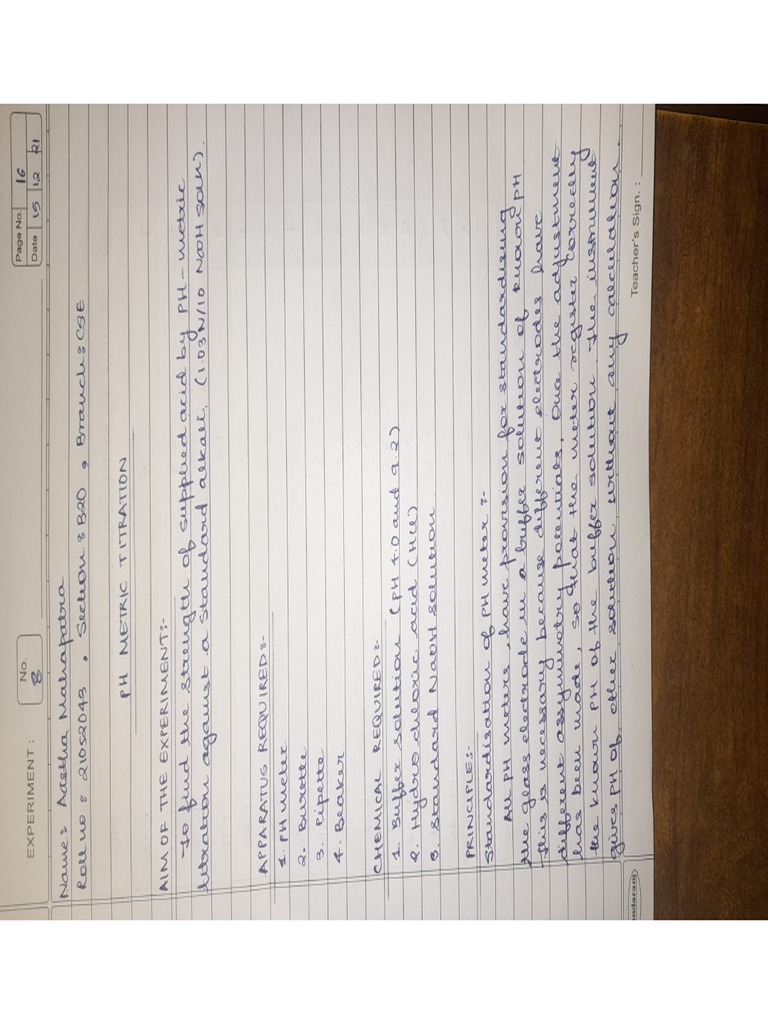 EXPERIMENT: No. 8 Page No. 16
Date 15 12 21
Name: Aastha Mahapatra
Roll no: 21052043, Section: B20, Branch: CSE
PH METRIC TITRATION
AIM OF THE EXPERIMENT:-
To find the strength of supplied acid by PH-metric
titration against a standard alkali. (1.03N/10 NaOH soln).
APPARATUS REQUIRED:-
1. PH meter
2. Burette
3. Pipette
4. Beaker
CHEMICAL REQUIRED:-
1. Buffer solution (PH 4.0 and 9.2)
2. Hydrochloric acid (HCl)
3. Standard NaOH solution
PRINCIPLE:-
Standardisation of PH meter:-
All PH meters, have provision for standardising
the glass electrode in a buffer solution of known PH
This is necessary because different electrodes have
different assymmetry potentials, Once the adjustment
has been made, so that the meter register correctly
the known PH of the buffer solution. The instrument
gives PH of other solution without any calculation.
Teacher's Sign.:
ndaram